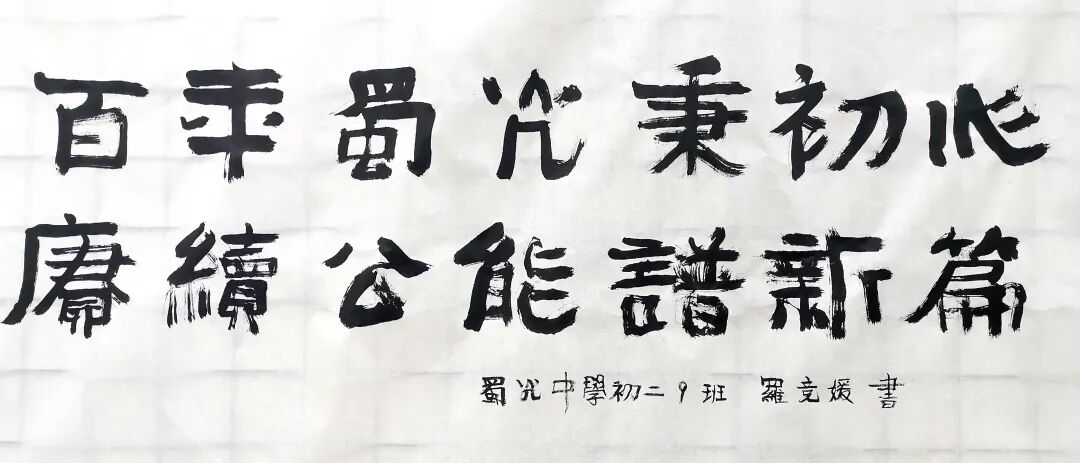 百年蜀光秉初心
赓續公能譜新篇
蜀光中學初二9班 羅竞媛書